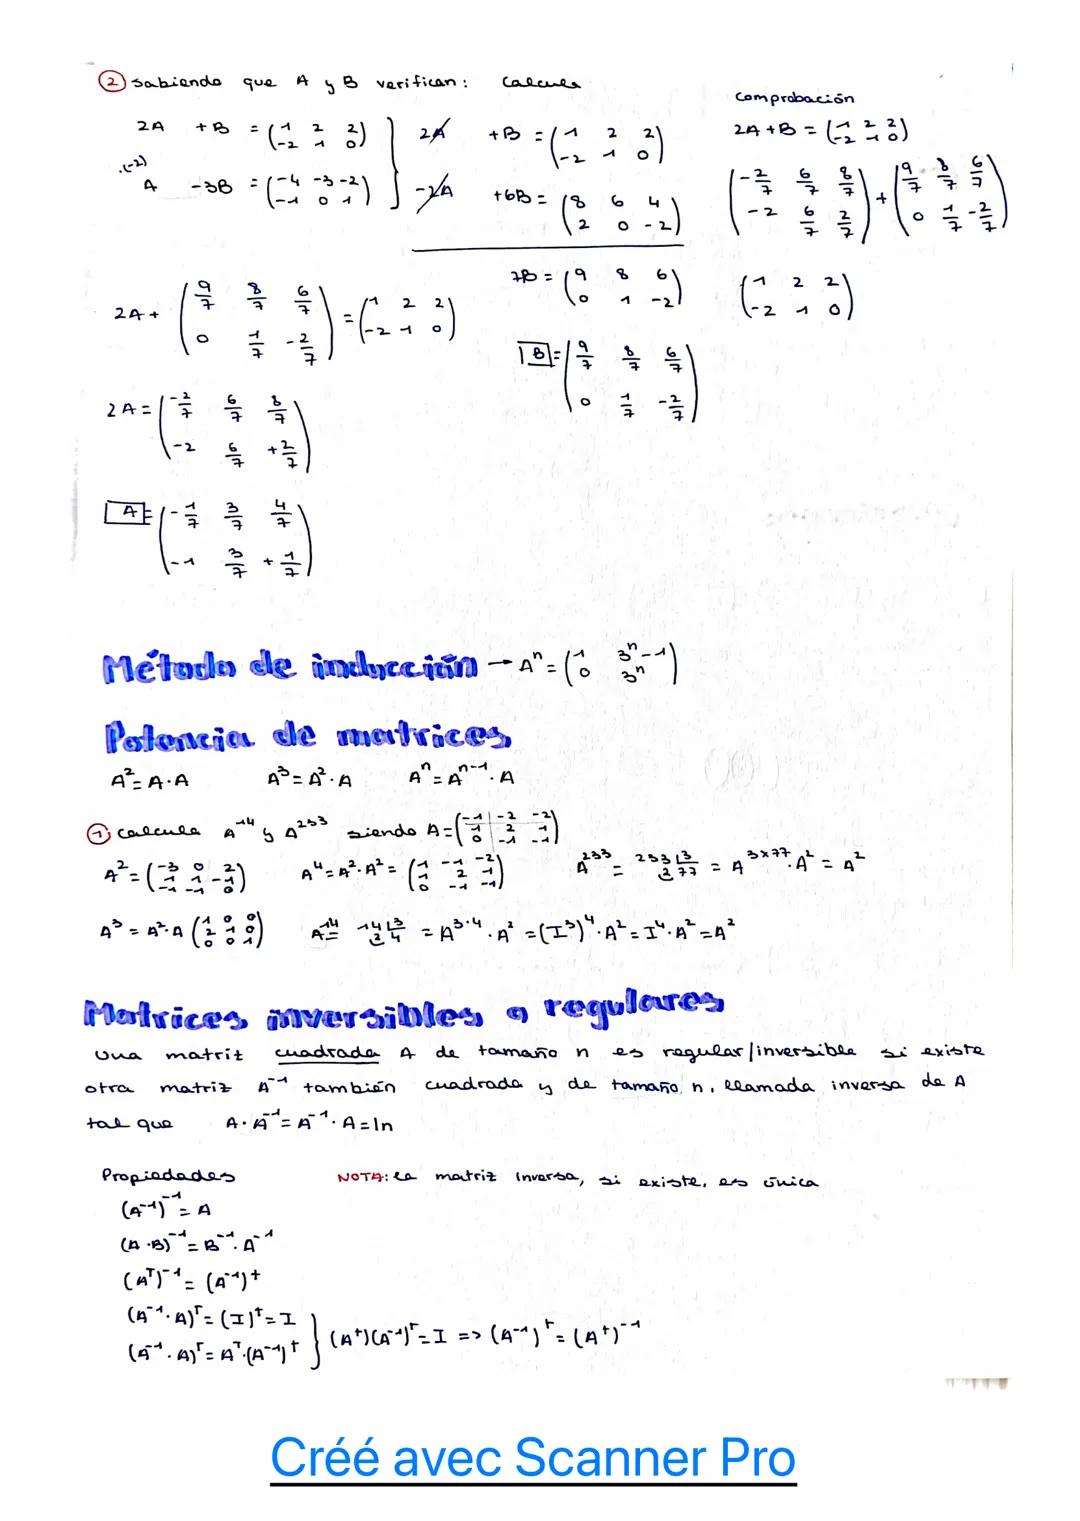 ② Sabiendo que A y B verifican: Calcula
2A + B = (1 2 2 / -2 1 0) } 2A + B = (1 2 2 / -2 1 0)
·(-2) A - 3B = (-4 -3 -2 / -1 0 1) } -2A + 6B = (8 6 4 / 2 0 -2)
7B = (9 8 6 / 0 1 -2)
B = (9/7 8/7 6/7 / 0 1/7 -2/7)
Comprobación
2A + B = (1 2 2 / -2 1 0)
(-2/7 6/7 8/7 / -2 6/7 2/7) + (9/7 8/7 6/7 / 0 1/7 -2/7)
(1 2 2 / -2 1 0)
2A + (9/7 8/7 6/7 / 0 1/7 -2/7) = (1 2 2 / -2 1 0)
2A = (-2/7 6/7 8/7 / -2 6/7 +2/7)
A = (-1/7 3/7 4/7 / -1 3/7 +1/7)
Método de inducción → Aⁿ = (1 3ⁿ-1 / 0 3ⁿ)
Potencia de matrices
A² = A·A A³ = A²·A Aⁿ = Aⁿ⁻¹·A
① Calcula A¹⁴ y A²³³ siendo A = (-1 -2 -2 / 1 2 1 / 0 -1 -1)
A² = A⁴ = A²·A² = A²³³ = 233 |3 2 77 = A³ˣ⁷⁷·A² = A²
A³ = A²·A A¹⁴ = 14 |3 2 4 = A³·⁴·A² = (I³)⁴·A² = I⁴·A² = A²
Matrices inversibles o regulares
Una matriz cuadrada A de tamaño n es regular/inversible si existe
otra matriz A⁻¹ también cuadrada y de tamaño n, llamada inversa de A
tal que A·A⁻¹ = A⁻¹·A = In
Propiedades NOTA: la matriz inversa, si existe, es única
(A⁻¹)⁻¹ = A
(A·B)⁻¹ = B⁻¹·A⁻¹
(Aᵀ)⁻¹ = (A⁻¹)ᵗ
(A⁻¹·A)ᵀ = (I)ᵗ = I
(A⁻¹·A)ᵀ = Aᵀ·(A⁻¹)ᵗ } (Aᵗ)(A⁻¹)ᵀ = I => (A⁻¹)ᵗ = (Aᵗ)⁻¹
Créé avec Scanner Pro